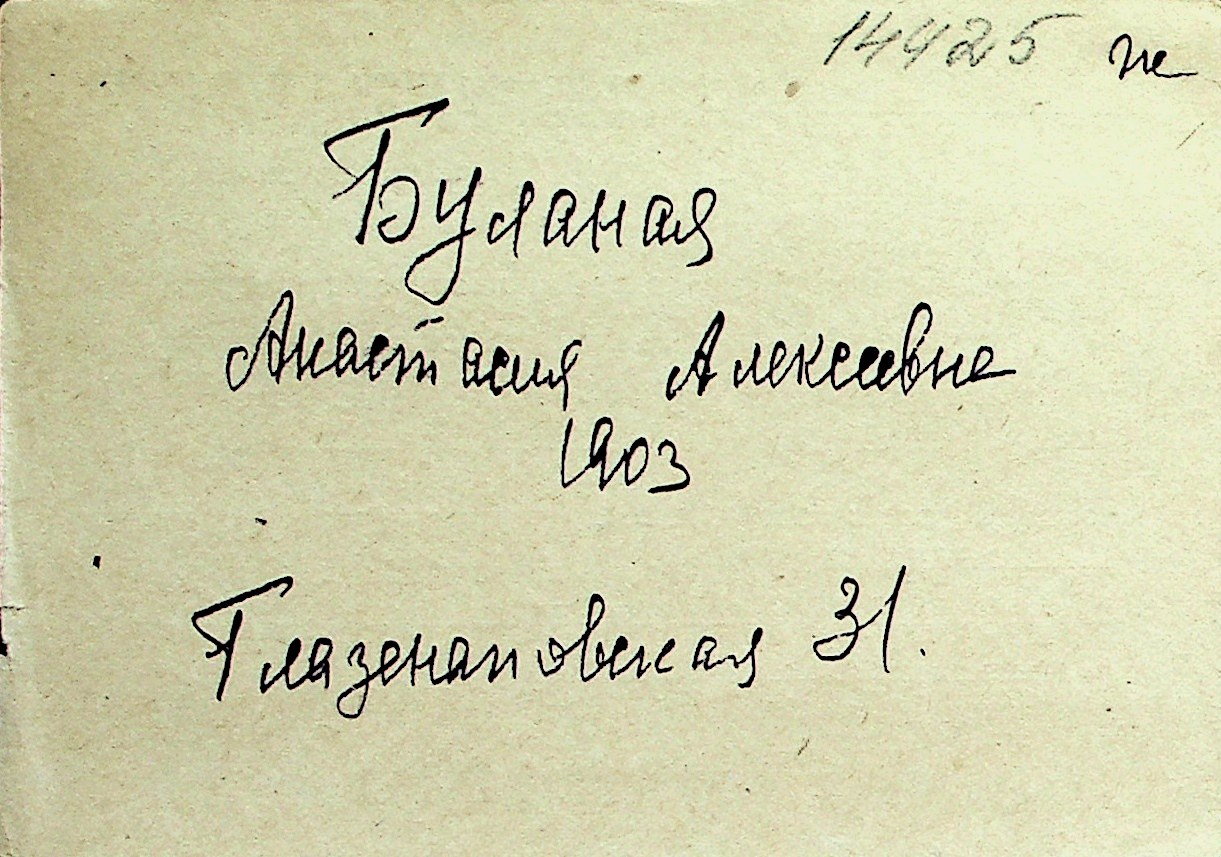 14425 не
Буланая
Анастасия Алексеевна
1903
Глазенаповская 31.